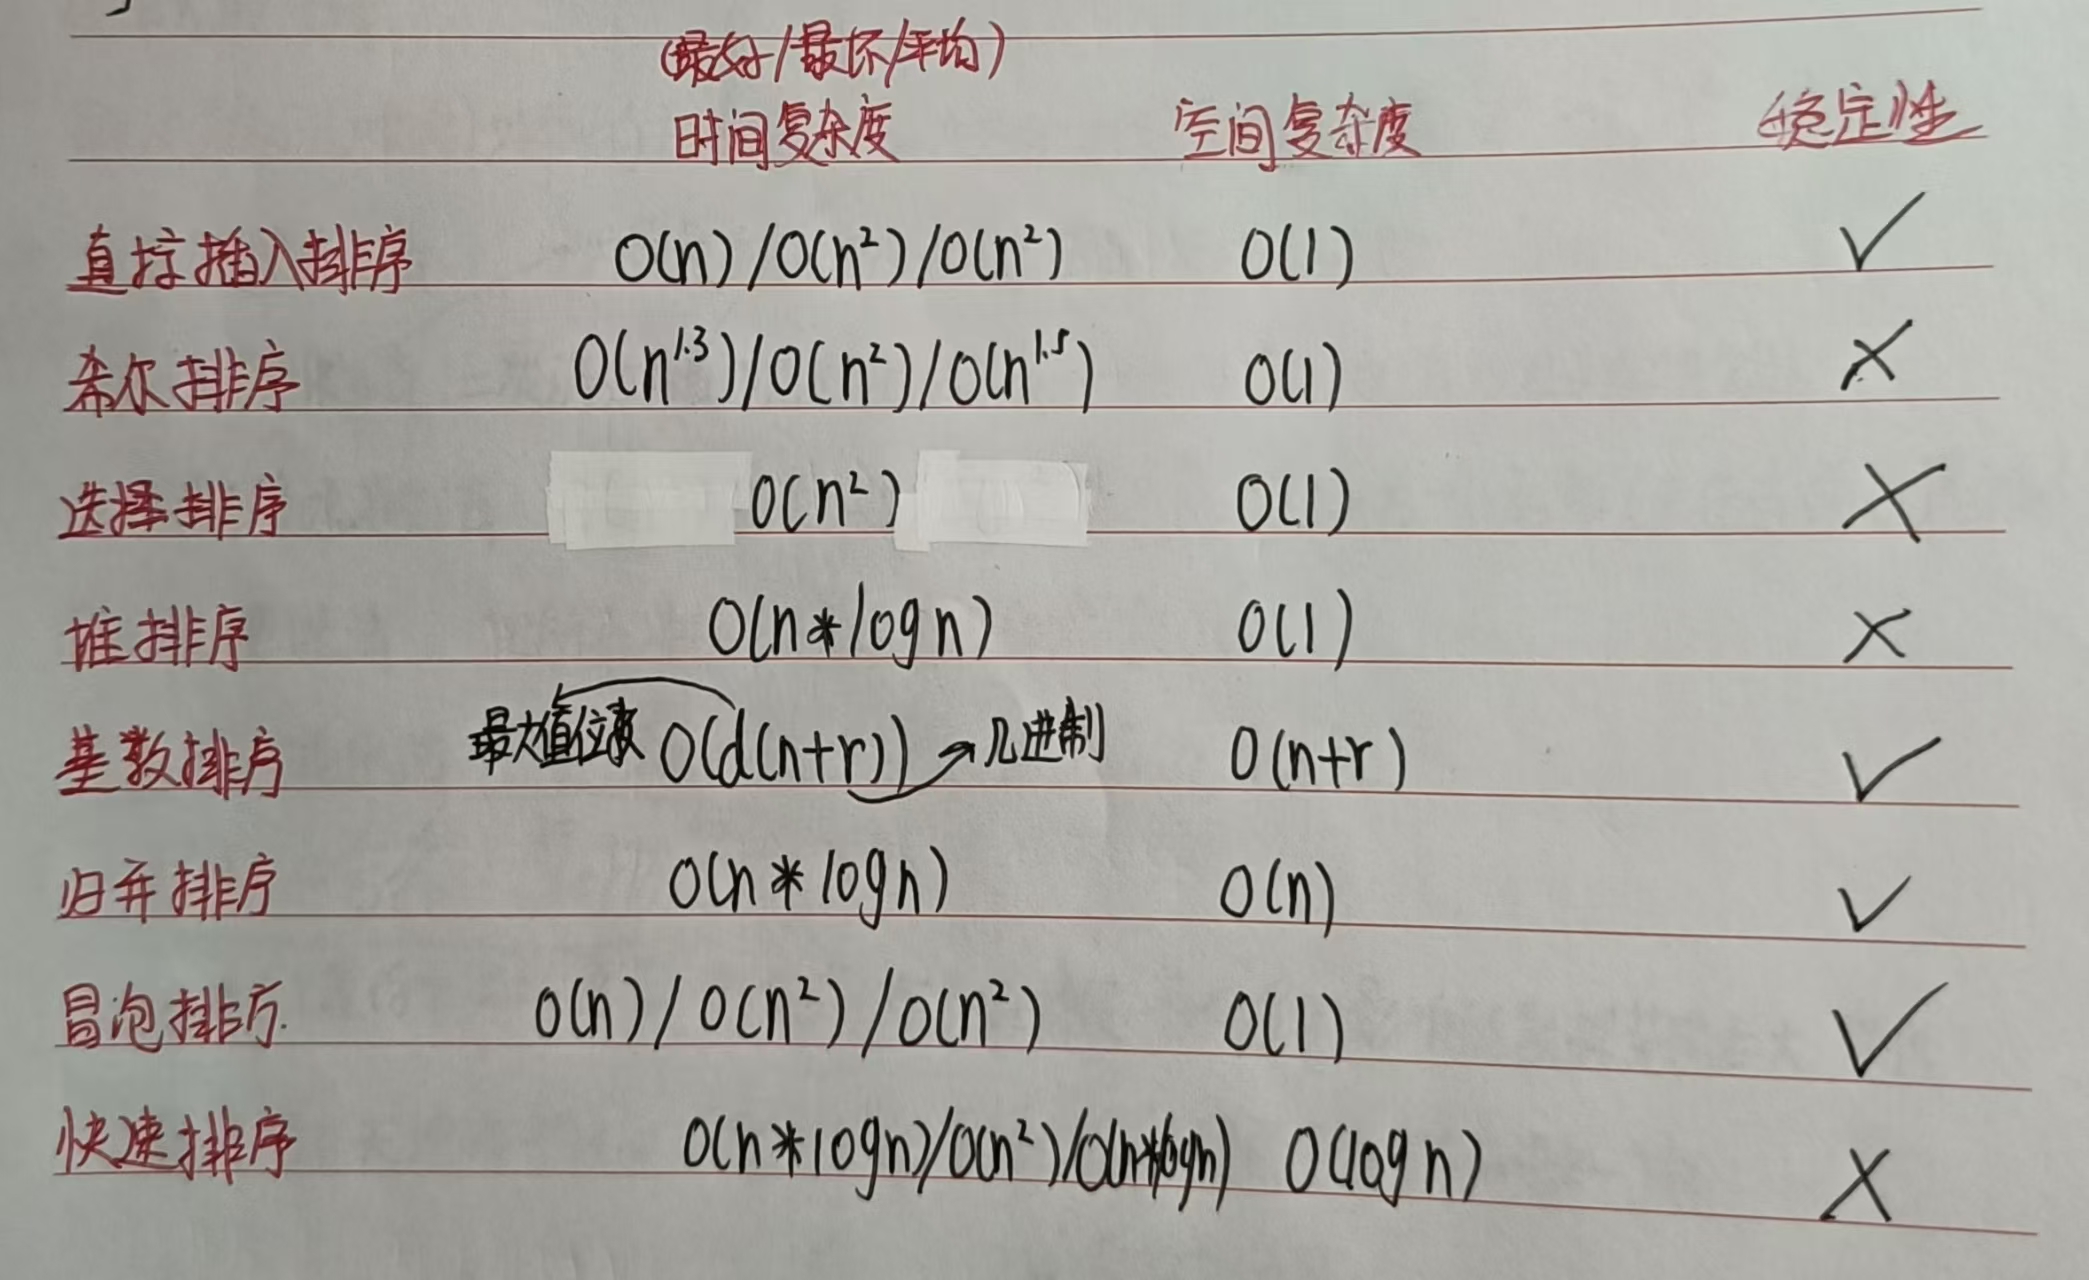 (最好/最坏/平均)
时间复杂度 空间复杂度 稳定性
直接插入排序 O(n)/O(n²)/O(n²) O(1) ✓
希尔排序 O(n^1.3)/O(n²)/O(n^1.5) O(1) ×
选择排序 O(n²) O(1) ×
堆排序 O(n*logn) O(1) ×
基数排序 最大值位数 O(d(n+r)) → 几进制 O(n+r) ✓
归并排序 O(n*logn) O(n) ✓
冒泡排序 O(n)/O(n²)/O(n²) O(1) ✓
快速排序 O(n*logn)/O(n²)/O(n*logn) O(logn) ×